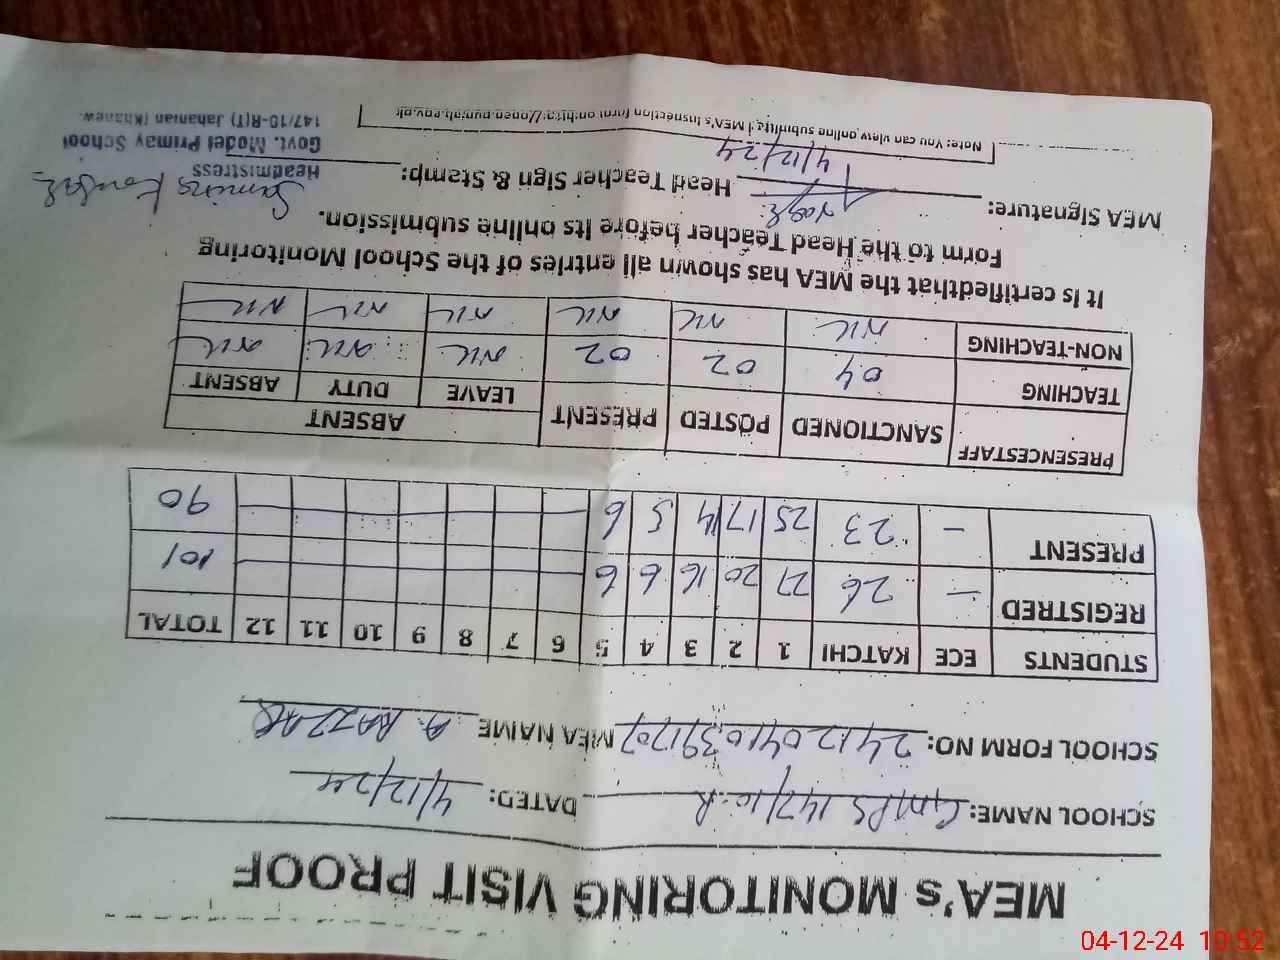 MEA's MONITORING VISIT PROOF
SCHOOL NAME: GMPS 147/10-R DATED: 4/12/24
SCHOOL FORM NO: MEA NAME A. RAZZAQ
STUDENTS ECE KATCHI 1 2 3 4 5 6 7 8 9 10 11 12 TOTAL
REGISTRED — 26 27 20 16 6 6 101
PRESENT — 23 25 17 14 5 6 90
PRESENCESTAFF SANCTIONED POSTED PRESENT ABSENT
LEAVE DUTY ABSENT
TEACHING 04 02 02 NIL NIL NIL
NON-TEACHING NIL NIL NIL NIL NIL NIL
It is certifiedthat the MEA has shown all entries of the School Monitoring
Form to the Head Teacher before its online submission.
MEA Signature: Head Teacher Sign & Stamp:
4/12/24
Samina Kousar
Headmistress
Govt. Model Primay School
147/10-R(T) Jahanian (Khanew
Note: You can view online submitted MEA's Inspection form on http://open.punjab.gov.pk
04-12-24 10:52